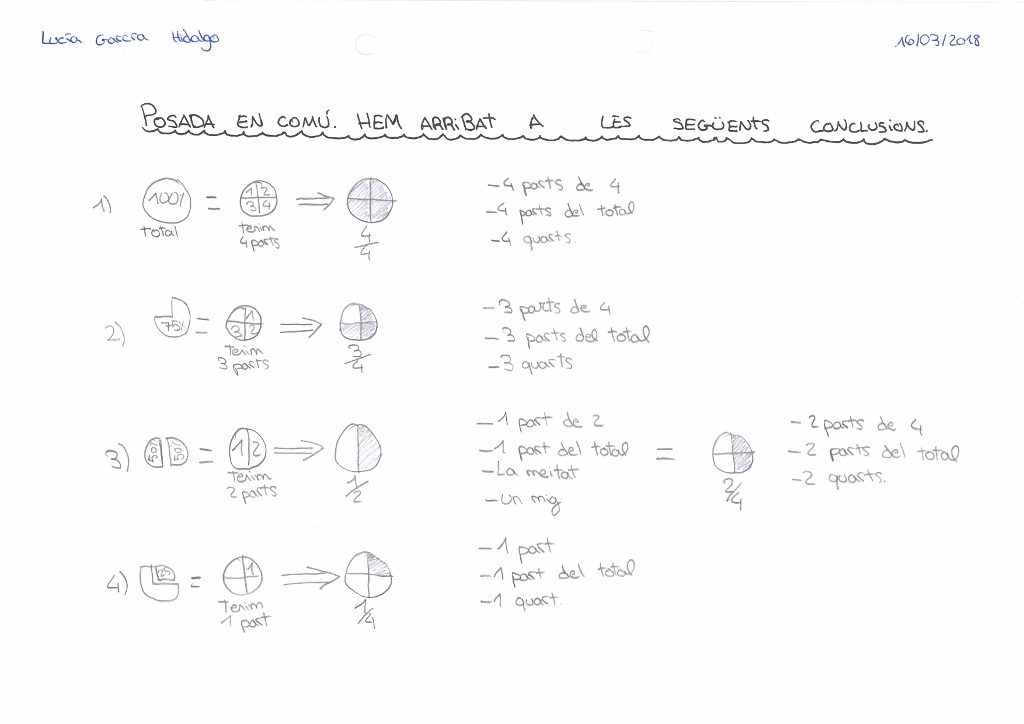 Lucía García Hidalgo
16/03/2018
POSADA EN COMÚ. HEM ARRIBAT A LES SEGÜENTS CONCLUSIONS.
1) 100% = 1 2 3 4 ⇒
total
Tenim
4 parts
4/4
-4 parts de 4
-4 parts del total
-4 quarts.
2) 75% = 1 3 2 ⇒
Tenim
3 parts
3/4
-3 parts de 4
-3 parts del total
-3 quarts
3) 50% 50% = 1 2 ⇒
Tenim
2 parts
1/2
-1 part de 2
-1 part del total
-La meitat
-Un mig
=
2/4
-2 parts de 4
-2 parts del total
-2 quarts.
4) 25 = 1 ⇒
Tenim
1 part
1/4
-1 part
-1 part del total
-1 quart.